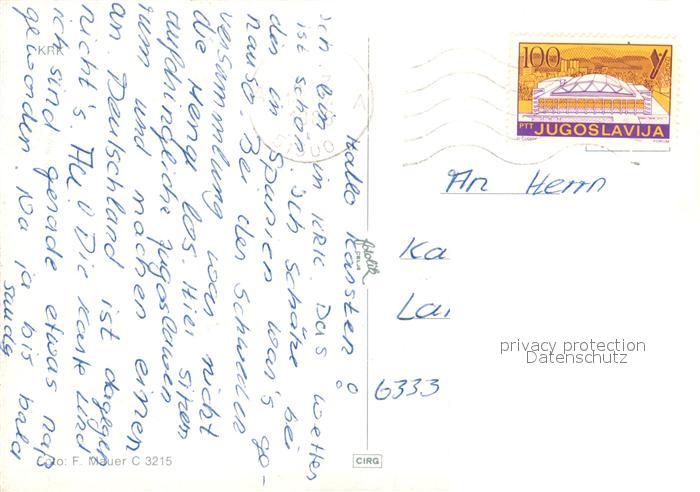 Hallo Karsten!
Ich bin in KRK. Das Wetter
ist schön. Ich schätze bei
dir in Spanien war's ge-
nauso. Bei der Schweden
versammlung war nicht
die Menge los. Hier sitzen
aufdringliche Jugoslawen
rum und machen einen
an. Deutschland ist dagegen
nicht's. Die Karte und
ich sind gerade etwas naß
geworden. Na ja bis bald
KRK
Foto: F. Mauer C 3215
CIRG
100
PTT JUGOSLAVIJA
FORUM
An Herrn
Ka
Lai
6333
privacy protection
Datenschutz